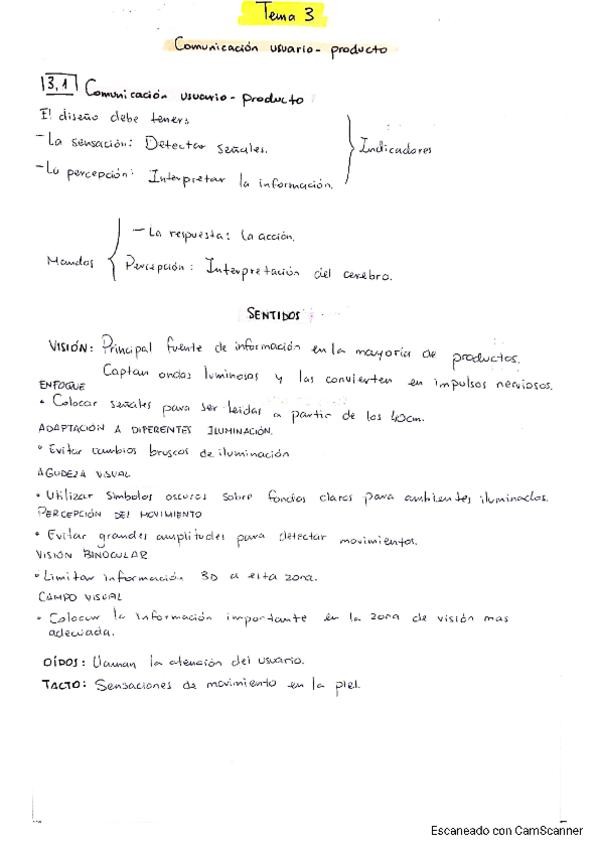 Tema 3
Comunicación usuario - producto
3.1 Comunicación usuario - producto
El diseño debe tener:
- La sensación: Detectar señales.
- La percepción: Interpretar la información.
Indicadores
Mandos
- La respuesta: la acción.
Percepción: Interpretación del cerebro.
SENTIDOS
VISIÓN: Principal fuente de información en la mayoría de productos.
Captan ondas luminosas y las convierten en impulsos nerviosos.
ENFOQUE
• Colocar señales para ser leidas a partir de los 40cm.
ADAPTACIÓN A DIFERENTES ILUMINACIÓN.
• Evitar cambios bruscos de iluminación
AGUDEZA VISUAL
• Utilizar símbolos oscuros sobre fondos claros para ambientes iluminados.
PERCEPCIÓN DEL MOVIMIENTO
• Evitar grandes amplitudes para detectar movimientos.
VISIÓN BINOCULAR
• Limitar información 3D a esta zona.
CAMPO VISUAL
• Colocar la información importante en la zona de visión mas
adecuada.
OÍDOS: Llaman la atención del usuario.
TACTO: Sensaciones de movimiento en la piel.
Escaneado con CamScanner